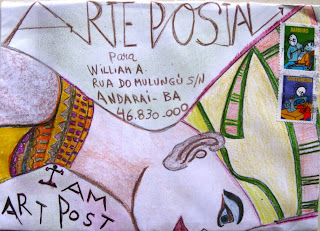 ARTE POSTAL
para
WILLIAM A.
RUA DO MULUNGÚ S/N
ANDARAI-BA
46.830.000
I AM
ART POST